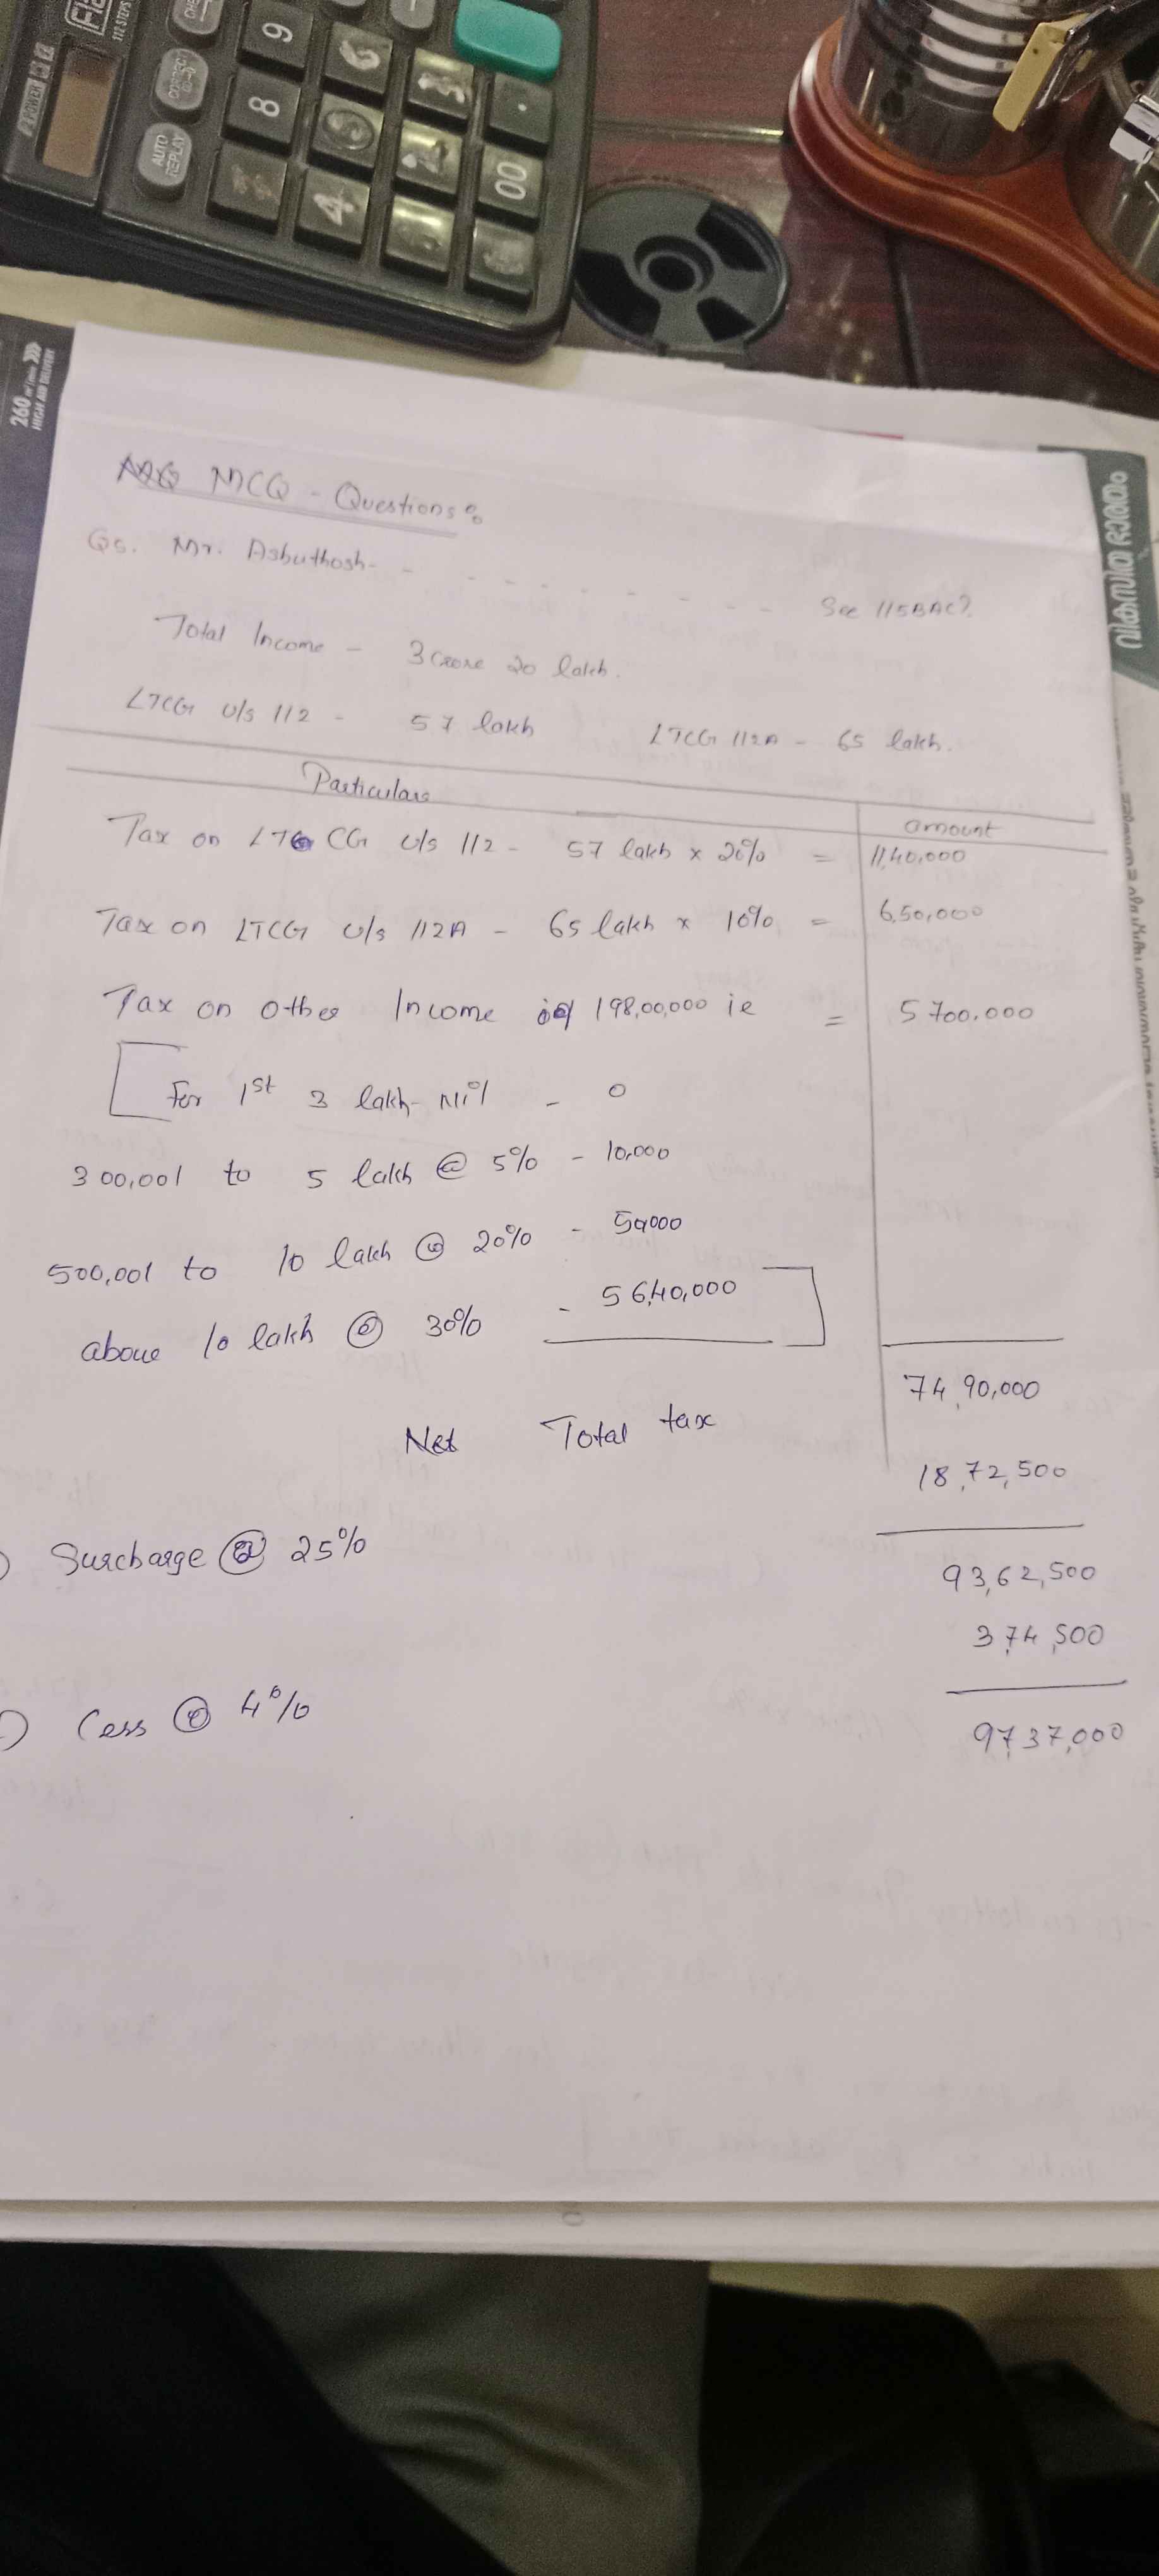 112 STEPS
POWER
CORRECT
AUTO REPLAY
9
6
3
.
8
2
00
4
260
HIGH AIR DELIVERY
വികസിത ഭാരതം
MCQ - Questions :
Qs. Mr. Ashuthosh - - - - - - - - - - - See 115BAC?
Total Income - 3 Crore 20 lakh.
LTCG u/s 112 - 57 lakh LTCG 112A - 65 lakh.
Particulars amount
Tax on LTCG u/s 112 - 57 lakh x 20% = 11,40,000
Tax on LTCG u/s 112A - 65 lakh x 10% = 6,50,000
Tax on other Income of 198,00,000 ie = 5700,000
[ For 1st 3 lakh - Nil - 0
300,001 to 5 lakh @ 5% - 10,000
500,001 to 10 lakh @ 20% - 50,000
above 10 lakh @ 30% - 56,40,000 ]
Net Total tax 74,90,000
Surcharge @ 25% 18,72,500
93,62,500
Cess @ 4% 3,74,500
97,37,000